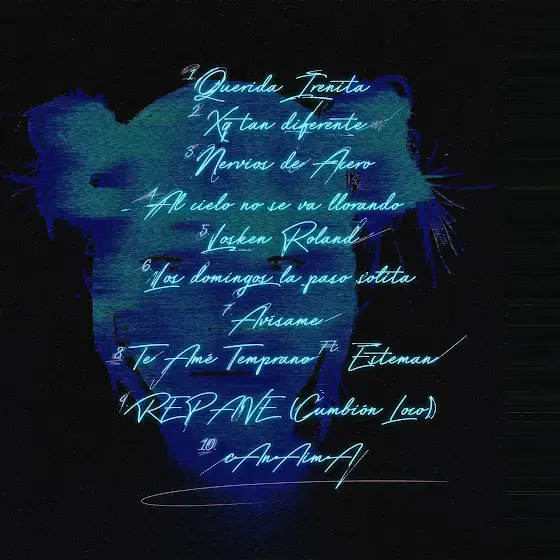 1. Querida Irenita
2. Xq tan diferente
3. Nervios de Acero
4. Al cielo no se va llorando
5. Losken Roland
6. Los domingos la paso solita
7. Avisame
8. Te Amé Temprano Ft. Esteman
9. REPAVE (Cumbión Loco)
10. cAnAimA